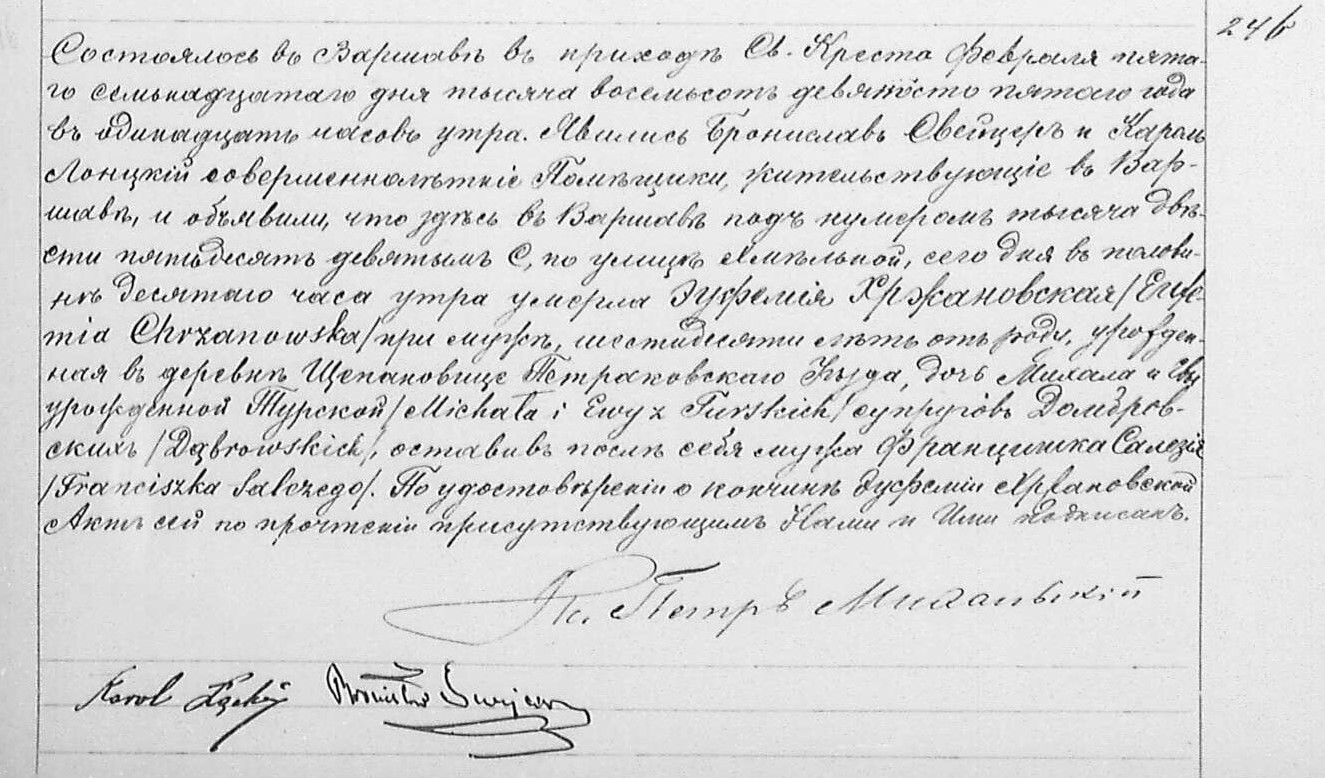 246
Состоялось въ Варшавѣ въ приходѣ Св. Креста февраля пята-
го семьнадцатаго дня тысяча восемьсотъ девяносто пятаго года
въ одинадцать часовъ утра. Явились Брониславъ Свейцеръ и Кароль
Лонцкій совершеннолѣтніе Помѣщики, жительствующіе въ Вар-
шавѣ, и объявили, что здѣсь въ Варшавѣ подъ нумеромъ тысяча двѣ-
сти пятьдесятъ девятымъ С, по улицѣ Хмѣльной, сего дня въ полови-
нѣ десятаго часа утра умерла Эуфемія Хржановская /Eufe-
mia Chrzanowska/ при мужѣ, шестидесяти лѣтъ отъ роду, урожден-
ная въ деревнѣ Щепановице Петраковскаго Уѣзда, дочь Михала и Евы
урожденной Турской /Michała i Ewy z Turskich/ супруговъ Домбров-
скихъ /Dąbrowskich/, оставивъ послѣ себя мужа Францишка Салезія
/Franciszka Salezego/. По удостовѣреніи о кончинѣ Эуфеміи Хржановской
Актъ сей по прочтеніи присутствующимъ Нами и Ими подписанъ.
Кс. Петръ
Karol Łącki Bronisław